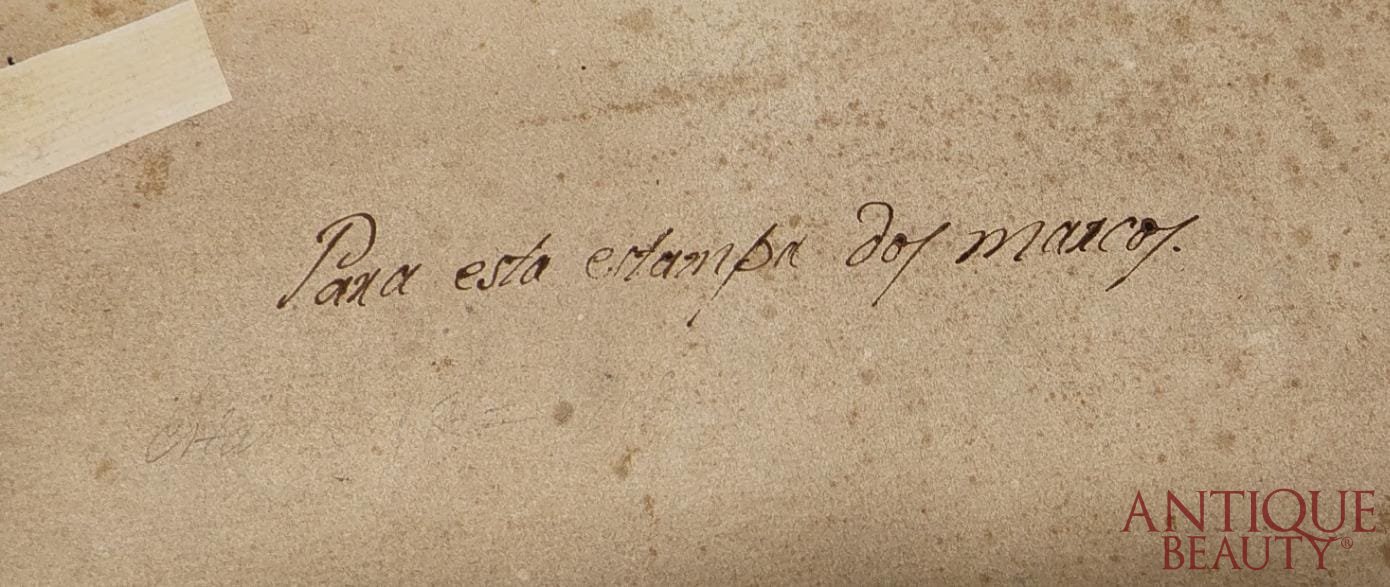 Para esta estampa dos marcos.
ANTIQUE
BEAUTY®